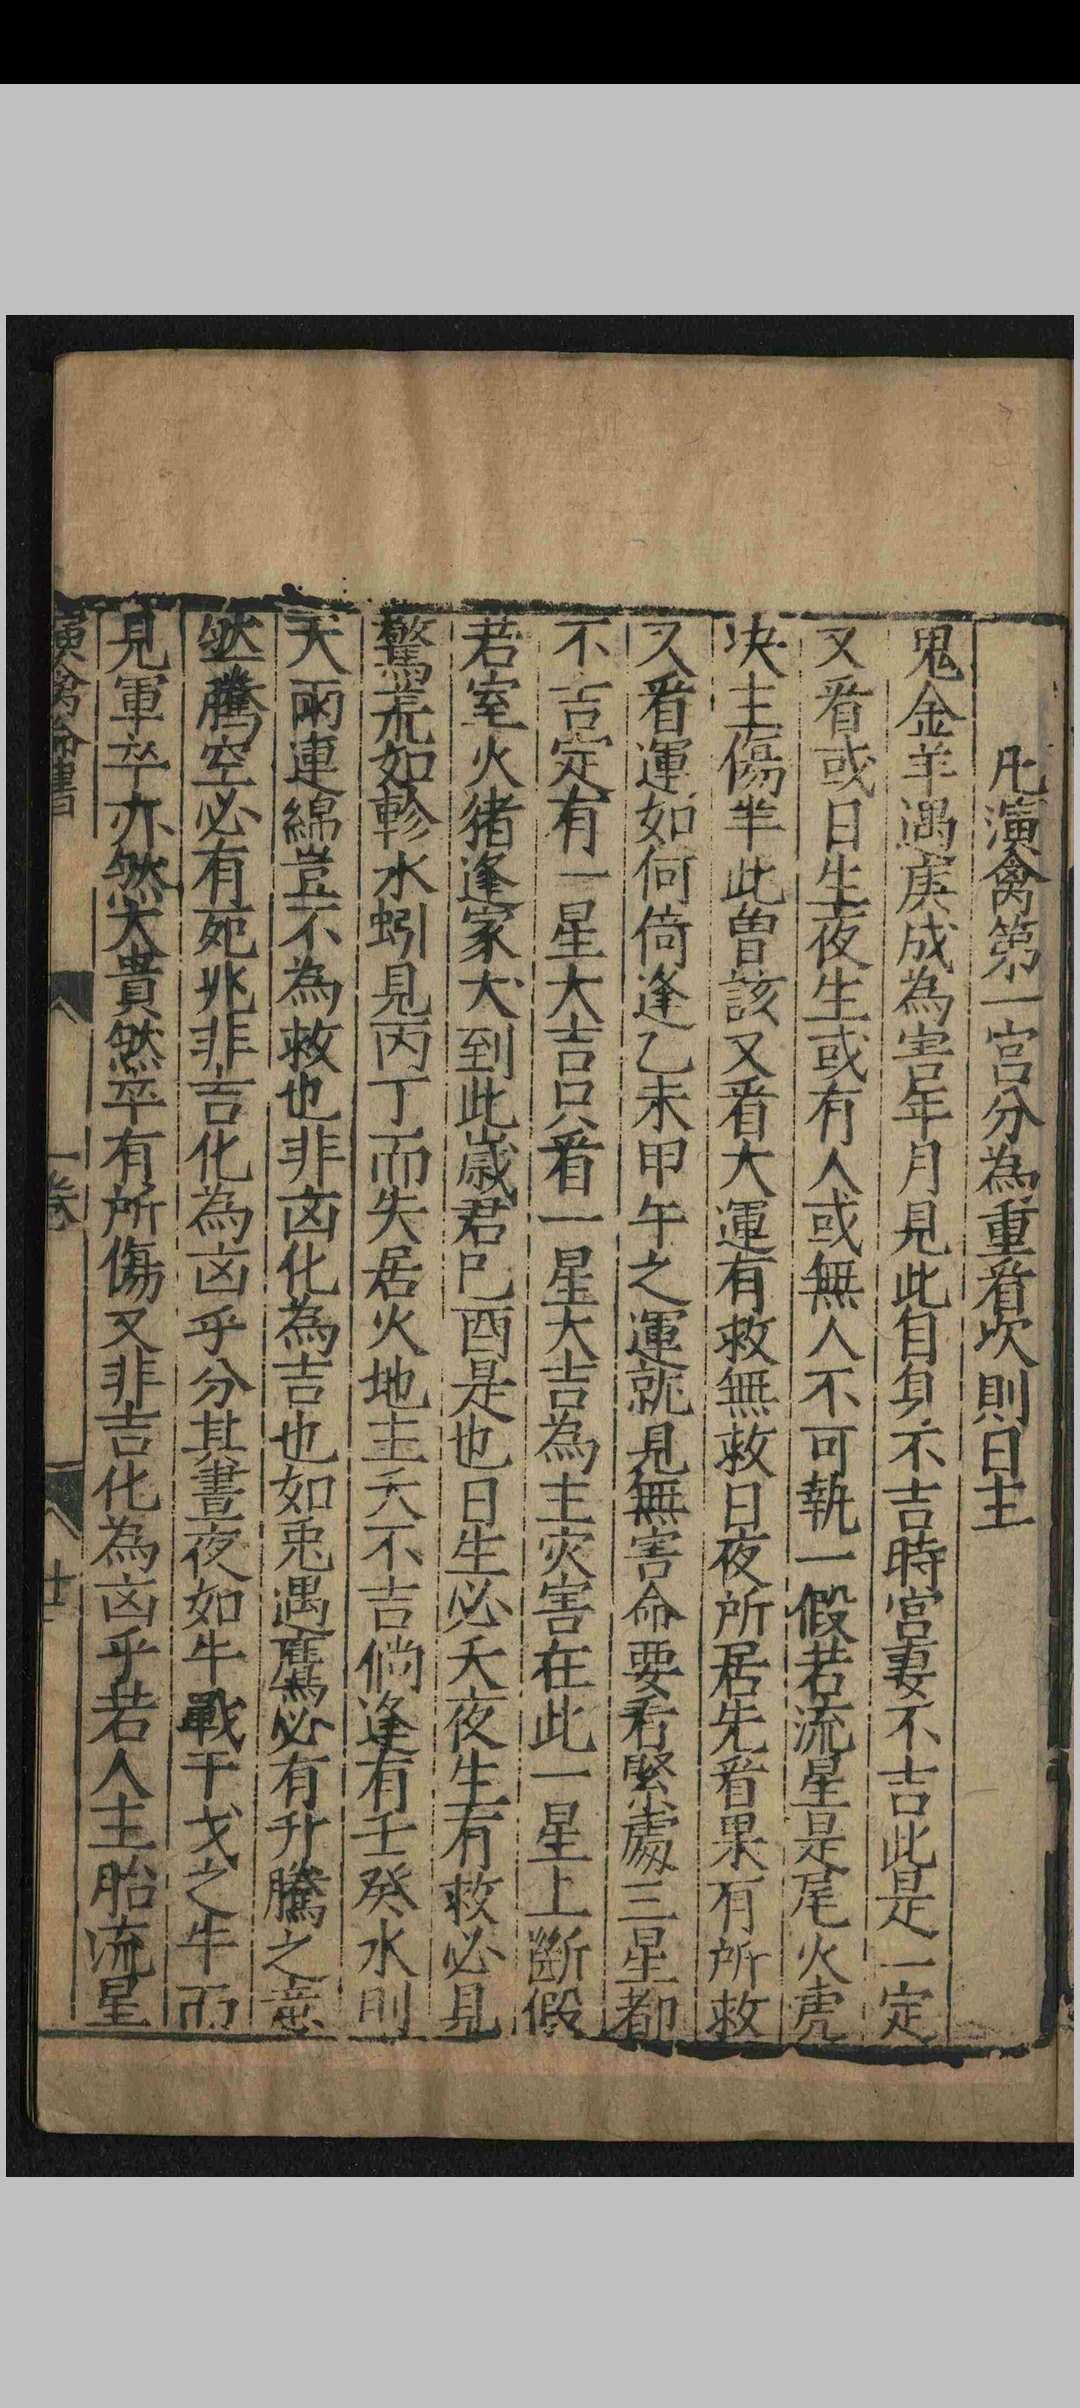 凡演禽第一宮分為重看次則日主
鬼金羊遇庚成為害年月見此自身不吉時宮妻不吉此是一定
又看或日生夜生或有人或無人不可執一假若流星是尾火虎
决主傷羊此曽該又看大運有救無救日夜所居先看果有所救
又看運如何倚逢乙未甲午之運就見無害命要看緊處三星都
不吉定有一星大吉只看一星大吉為主灾害在此一星上斷假
若室火猪逢家犬到此歲君巳酉是也日生必夭夜生有救必見
驚荒如軫水蚓見丙丁而失居火地主夭不吉倘逢有壬癸水則
天雨連綿豈不為救也非凶化為吉也如兎遇鷹必有升騰之意
然騰空必有死兆非吉化為凶乎分其晝夜如牛戰干戈之牛而
見軍卒亦然大貴然平有所傷又非吉化為凶乎若人主胎流星
演禽命書
一卷
廿